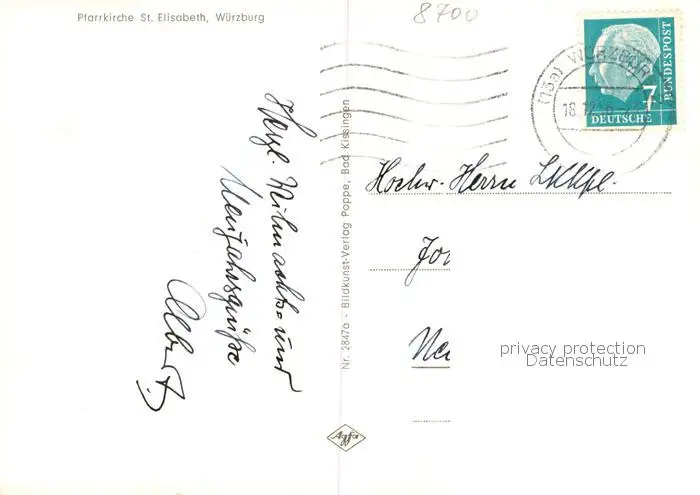 Pfarrkirche St. Elisabeth, Würzburg
8700
Herzl. Weihnachts- und
Neujahrsgrüße
Albert
Nr. 2847a - Bildkunst-Verlag Poppe, Bad Kissingen
Agfa
7
DEUTSCHE
BUNDESPOST
(13a) WÜRZBURG
Hochw. Herrn
Jo
Ne
privacy protection
Datenschutz